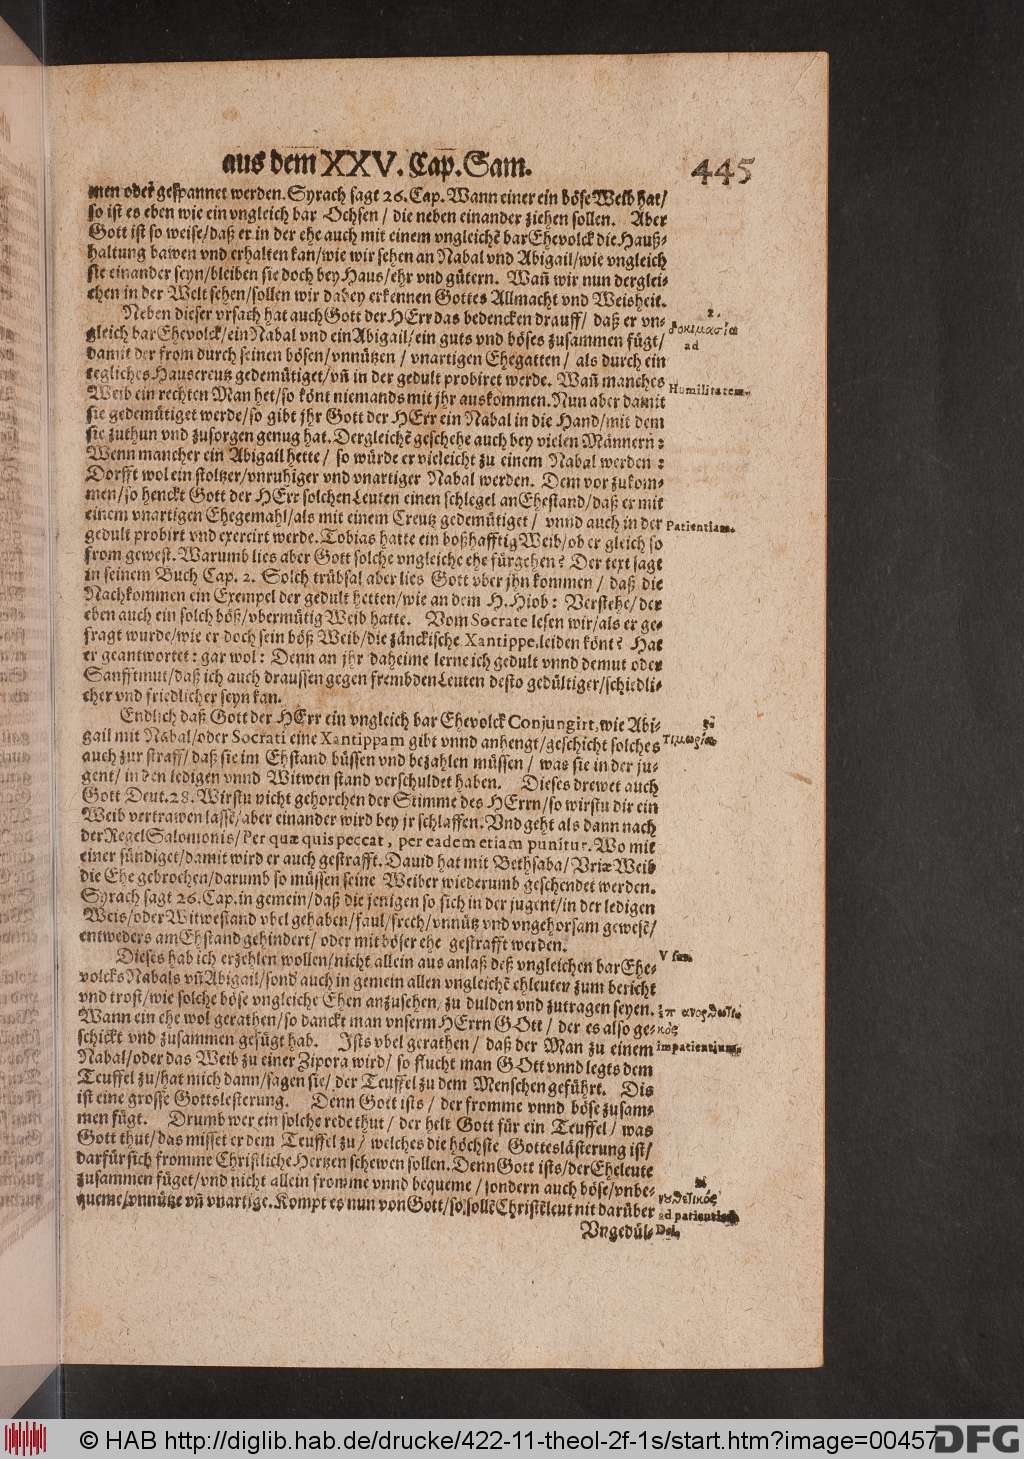 aus dem XXV. Cap. Sam. 445
men oder gespannet werden. Syrach sagt 26. Cap. Wann einer ein böse Weib hat/
so ist es eben wie ein vngleich bar Ochsen / die neben einander ziehen sollen. Aber
Gott ist so weise/daß er in der ehe auch mit einem vngleichē bar Ehevolck die Hauß-
haltung bawen vnd erhalten kan/wie wir sehen an Nabal vnd Abigail/wie vngleich
sie einander seyn/bleiben sie doch bey Haus/ehr vnd gütern. Wañ wir nun derglei-
chen in der Welt sehen/sollen wir dabey erkennen Gottes Allmacht vnd Weisheit.
Neben dieser vrsach hat auch Gott der HErr das bedencken drauff/ daß er vn-
gleich bar Ehevolck/ein Nabal vnd ein Abigail/ein guts vnd böses zusammen fügt/
damit der from durch seinen bösen/vnnützen / vnartigen Ehegatten / als durch ein
tegliches Hauscreutz gedemütiget/vñ in der gedult probiret werde. Wañ manches
Weib ein rechten Man het/so könt niemands mit jhr auskommen. Nun aber damit
sie gedemütiget werde/so gibt jhr Gott der HErr ein Nabal in die Hand/mit dem
sie zuthun vnd zusorgen genug hat. Dergleichē geschehe auch bey vielen Männern:
Wenn mancher ein Abigail hette / so würde er vieleicht zu einem Nabal werden:
Dorfft wol ein stoltzer/vnruhiger vnd vnartiger Nabal werden. Dem vor zukom-
men/so henckt Gott der HErr solchen Leuten einen schlegel an Ehestand/daß er mit
einem vnartigen Ehegemahl/als mit einem Creutz gedemütiget / vnnd auch in der
gedult probirt vnd exercirt werde. Tobias hatte ein boßhafftig Weib/ob er gleich so
from gewest. Warumb lies aber Gott solche vngleiche ehe fürgehen? Der text sagt
in seinem Buch Cap. 2. Solch trübsal aber lies Gott vber jhn kommen / daß die
Nachkommen ein Exempel der gedult hetten/wie an dem H. Hiob: Verstehe/der
eben auch ein solch böß/vbermütig Weib hatte. Vom Socrate lesen wir/als er ge-
fragt wurde/wie er doch sein böß Weib/die zänckische Xantippe, leiden könt? Hat
er geantwortet: gar wol: Denn an jhr daheime lerne ich gedult vnnd demut oder
Sanfftmut/daß ich auch draussen gegen frembden Leuten desto gedültiger/schiedli-
cher vnd friedlicher seyn kan.
Endlich daß Gott der HErr ein vngleich bar Ehevolck Conjungirt, wie Abi-
gail mit Nabal/oder Socrati eine Xantippam gibt vnnd anhengt/geschicht solches
auch zur straff/daß sie im Ehstand büssen vnd bezahlen müssen / was sie in der ju-
gent/ in den ledigen vnnd Witwen stand verschuldet haben. Dieses drewet auch
Gott Deut. 28. Wirstu nicht gehorchen der Stimme des HErrn/so wirstu dir ein
Weib vertrawen lassē/aber einander wird bey jr schlaffen. Vnd geht als dann nach
der Regel Salomonis/Per quæ quis peccat, per eadem etiam punitur. Wo mit
einer sündiget/damit wird er auch gestrafft. Dauid hat mit Bethsaba/Vriæ Weib
die Ehe gebrochen/darumb so müssen seine Weiber wiederumb geschendet werden.
Syrach sagt 26. Cap. in gemein/daß die jenigen so sich in der jugent/in der ledigen
Weis/oder Witwestand vbel gehaben/faul/frech/vnnütz vnd vngehorsam gewesē/
entweders am Ehstand gehindert/ oder mit böser ehe gestrafft werden.
Dieses hab ich erzehlen wollen/nicht allein aus anlaß deß vngleichen bar Ehe-
volcks Nabals vñ Abigail/sond auch in gemein allen vngleichē ehleuten zum bericht
vnd trost/wie solche böse vngleiche Ehen anzusehen, zu dulden vnd zutragen seyen.
Wann ein ehe wol gerathen/so danckt man vnserm HErrn GOtt / der es also ge-
schickt vnd zusammen gefügt hab. Ists vbel gerathen/ daß der Man zu einem
Nabal/oder das Weib zu einer Zipora wird/ so flucht man GOtt vnnd legts dem
Teuffel zu/hat mich dann/sagen sie/ der Teuffel zu dem Menschen geführt. Dis
ist eine grosse Gottslesterung. Denn Gott ists / der fromme vnnd böse zusam-
men fügt. Drumb wer ein solche rede thut / der helt Gott für ein Teuffel / was
Gott thut/das misset er dem Teuffel zu / welches die höchste Gotteslästerung ist/
darfür sich fromme Christliche Hertzen schewen sollen. Denn Gott ists/der Eheleute
zusammen füget/vnd nicht allein fromme vnnd bequeme / sondern auch böse/vnbe-
queme/vnnütze vñ vnartige. Kompt es nun von Gott/so sollē Christēleut nit darüber
Vngedül-
2.
δοκιμασία
ad
Humilitatem.
Patientiam.
3.
τιμωρία
Vsus.
impatientium.
ad patientiam
Dei.